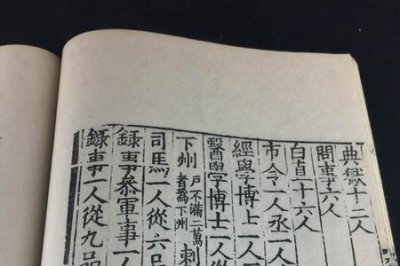 典獄十二人
問事六人
白直十六人
市令一人丞一人
經學博士一人
醫學博士一人從
下州戶不滿二萬者爲下州刺
司馬一人從六品
錄事參軍事一人
錄事一人從九品